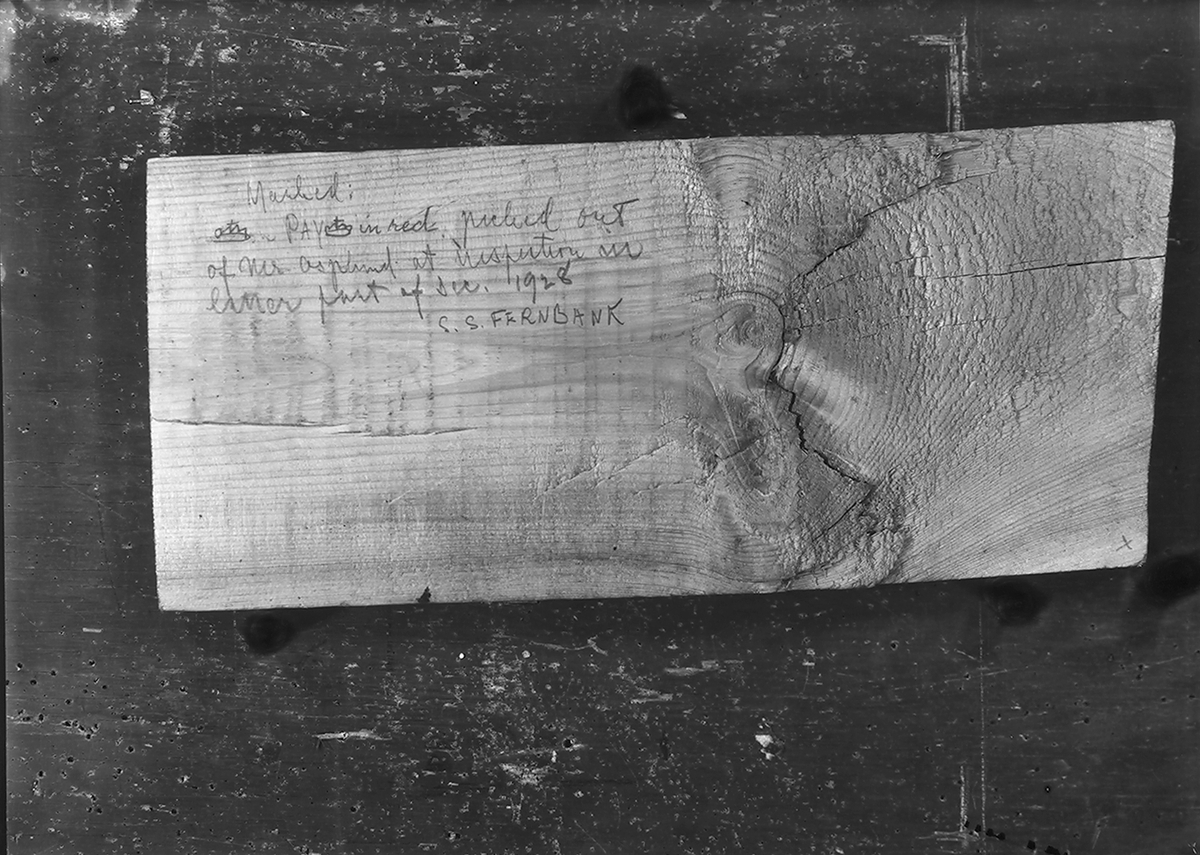 Marked:
PAY in red, picked out
of Mr. Asplund at inspection in
part of Dec. 1928
S.S. FERNBANK
x